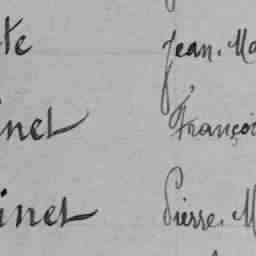 te Jean. Ma
inet Françoi
inet Pierre. M